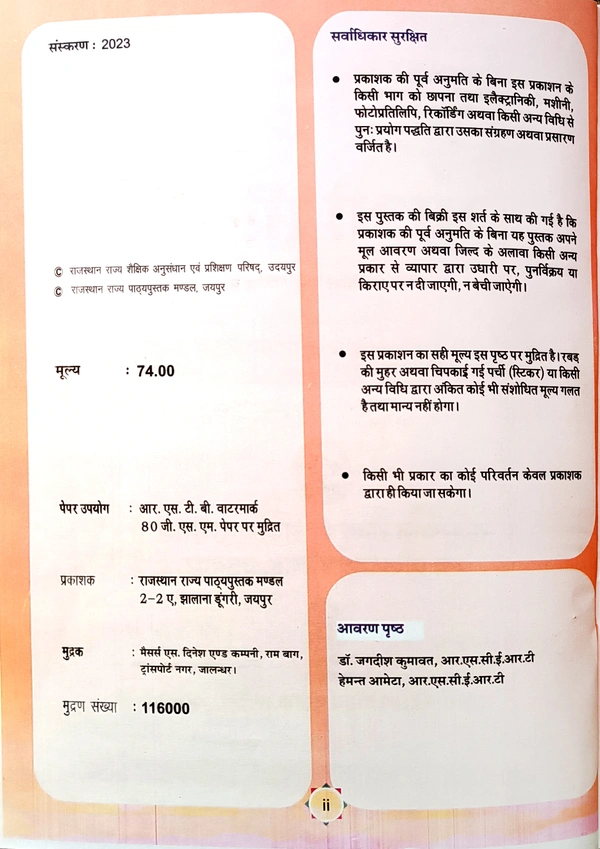 संस्करण : 2023
© राजस्थान राज्य शैक्षिक अनुसंधान एवं प्रशिक्षण परिषद्, उदयपुर
© राजस्थान राज्य पाठ्यपुस्तक मण्डल, जयपुर
मूल्य : 74.00
पेपर उपयोग : आर. एस. टी. बी. वाटरमार्क
80 जी. एस. एम. पेपर पर मुद्रित
प्रकाशक : राजस्थान राज्य पाठ्यपुस्तक मण्डल
2-2 ए, झालाना डूंगरी, जयपुर
मुद्रक : मैसर्स एस. दिनेश एण्ड कम्पनी, राम बाग,
ट्रांसपोर्ट नगर, जालन्धर।
मुद्रण संख्या : 116000
सर्वाधिकार सुरक्षित
● प्रकाशक की पूर्व अनुमति के बिना इस प्रकाशन के
किसी भाग को छापना तथा इलैक्ट्रानिकी, मशीनी,
फोटोप्रतिलिपि, रिकॉर्डिंग अथवा किसी अन्य विधि से
पुनः प्रयोग पद्धति द्वारा उसका संग्रहण अथवा प्रसारण
वर्जित है।
● इस पुस्तक की बिक्री इस शर्त के साथ की गई है कि
प्रकाशक की पूर्व अनुमति के बिना यह पुस्तक अपने
मूल आवरण अथवा जिल्द के अलावा किसी अन्य
प्रकार से व्यापार द्वारा उधारी पर, पुनर्विक्रय या
किराए पर न दी जाएगी, न बेची जाऐगी।
● इस प्रकाशन का सही मूल्य इस पृष्ठ पर मुद्रित है। रबड़
की मुहर अथवा चिपकाई गई पर्ची (स्टिकर) या किसी
अन्य विधि द्वारा अंकित कोई भी संशोधित मूल्य गलत
है तथा मान्य नहीं होगा।
● किसी भी प्रकार का कोई परिवर्तन केवल प्रकाशक
द्वारा ही किया जा सकेगा।
आवरण पृष्ठ
डॉ. जगदीश कुमावत, आर.एस.सी.ई.आर.टी
हेमन्त आमेटा, आर.एस.सी.ई.आर.टी
ii